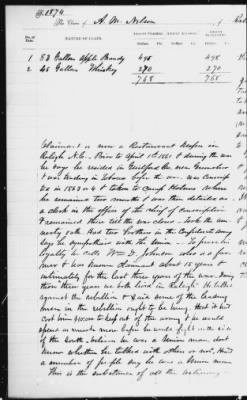 No. 2874.
The Claim of A. M. Nelson, of
No. of Item. NATURE OF CLAIM. Amount Claimed. Amount Allowed.
1 83 Gallon Apple Brandy 498 498
2 45 Gallon Whiskey 270 270
768 768
Claimant is now a Restaurant Keeper in
Raleigh N.C. Prior to April 1st 1861 & during the war
he says he resided in Guilford Co. near Greensboro
& was trading in Tobacco before the war. Was Conscripted
in 1863 & taken to Camp Holmes where
he remained two months & was then detailed as
a clerk in the office of the chief of conscription
& remained there till the war closed. Took the
oath. Had two brothers in the Confederate Army
Says he sympathised with the Union. To prove his
loyalty he calls Wm D. Johnson who is a farmer
& has known claimant about 15 years &
intimately for the last three years of the war. During
those three years we both lived in Raleigh. He talked
against the rebellion & said some of the leading
men in the rebellion ought to be hung. Said it had
cost him to keep out of the army & he would
spend as much more before he would fight on the side
of the South. Nelson he was a Union man. dont
know whether he talked with others or not. Heard
a number of people say he was a Union man
This is the substance of all the testimony